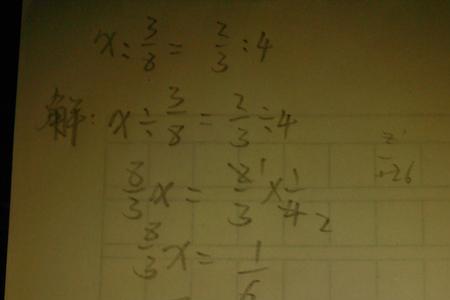 x:3/8=2/3:4
解:x÷3/8=2/3÷4
8/3x=8/3×1/4 1 2
8/3x=1/6